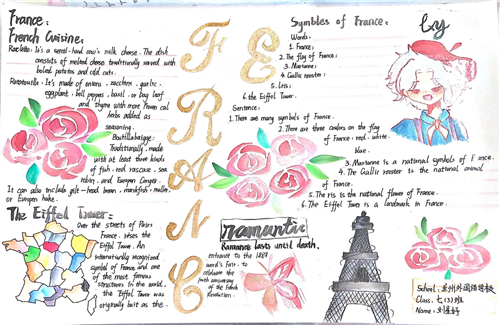 France:
French Cuisine:
Raclette: It's a semi-hard cow's milk cheese. The dish
consists of melted cheese traditionally served with
boiled potatoes and cold cuts.
Ratatouille: It's made of onions, zucchini, garlic,
eggplant, bell peppers, basil, or bay leaf
and thyme with more Proven cal
herbs added as
seasoning.
Bouillabaisse:
Traditionally made
with at least three kinds
of fish: red rascasse, sea
robin, and Europen Conger.
It can also include gilt-head bream, monkfish, mullet,
or Europen hake.
The Eiffel Tower:
Over the streets of Paris
France, rises the
Eiffel Tower. An
internationally recognized
symbol of France and one
of the most famous
structures in the world,
the Eiffel Tower was
originally built as the
FRANCE
romantic
Romance lasts until death.
entrance to the 1889
world's Fair, to
celebrate the
100th anniversary
of the French
Revolution.
Symbles of France:
Words:
1. France;
2. The flag of France;
3. Marianne;
4. Gallic rooster;
5. Iris;
6. the Eiffel Tower.
Sentence:
1. There are many symbols of France.
2. There are three colours on the flag
of France: red, white,
blue.
3. Marianne is a national symbols of France.
4. The Gallic rooster is the national animal
of France.
5. The iris is the national flower of France.
6. The Eiffel Tower is a landmark in France.
by
School: 兰州外国语学校
Class: 七(3)班
Name: